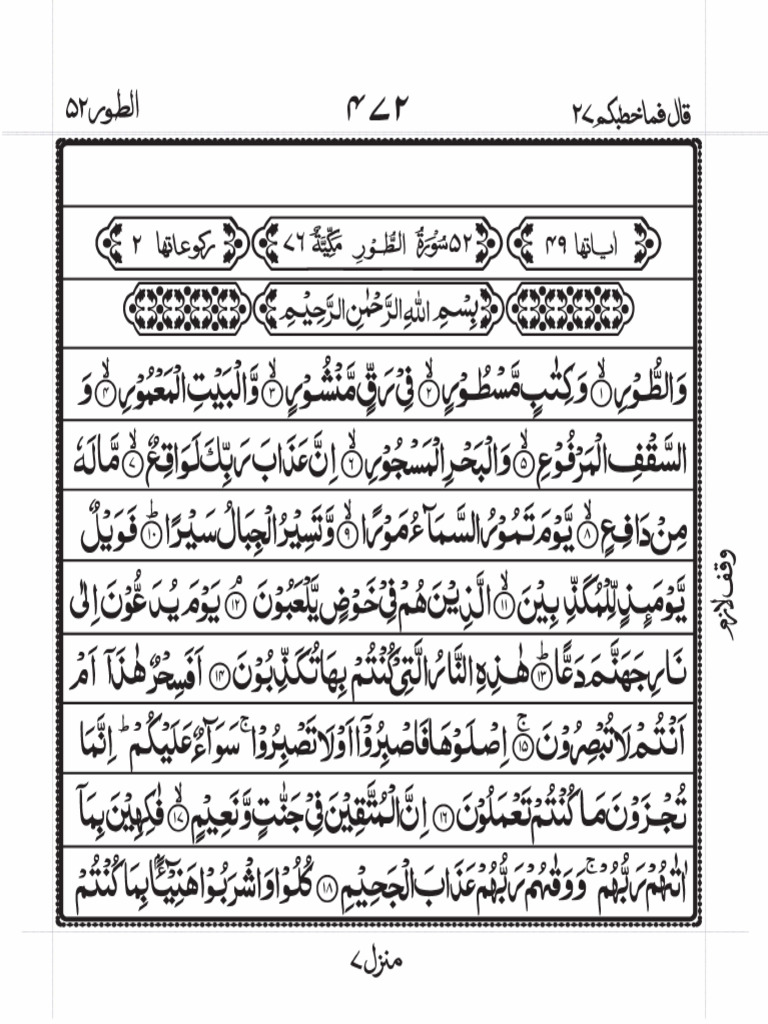 قال فما خطبكم ٢٧ ٤٧٢ الطور ٥٢
اٰیاتها ٤٩ ٥٢ سُوْرَةُ الطُّوْرِ مَكِّيَّةٌ ٧٦ رکوعاتها ٢
بِسْمِ اللّٰهِ الرَّحْمٰنِ الرَّحِيْمِ
وَالطُّوْرِ ۙ﴿١﴾ وَكِتٰبٍ مَّسْطُوْرٍ ۙ﴿٢﴾ فِيْ رَقٍّ مَّنْشُوْرٍ ۙ﴿٣﴾ وَّالْبَيْتِ الْمَعْمُوْرِ ۙ﴿٤﴾ وَ
السَّقْفِ الْمَرْفُوْعِ ۙ﴿٥﴾ وَالْبَحْرِ الْمَسْجُوْرِ ۙ﴿٦﴾ اِنَّ عَذَابَ رَبِّكَ لَوَاقِعٌ ۙ﴿٧﴾ مَّا لَهٗ
مِنْ دَافِعٍ ۙ﴿٨﴾ يَّوْمَ تَمُوْرُ السَّمَآءُ مَوْرًا ۙ﴿٩﴾ وَّتَسِيْرُ الْجِبَالُ سَيْرًا ؕ﴿١٠﴾ فَوَيْلٌ
يَّوْمَىِٕذٍ لِّلْمُكَذِّبِيْنَ ۙ﴿١١﴾ الَّذِيْنَ هُمْ فِيْ خَوْضٍ يَّلْعَبُوْنَ ۘ﴿١٢﴾ يَوْمَ يُدَعُّوْنَ اِلٰى
وقف لازم
نَارِ جَهَنَّمَ دَعًّا ؕ﴿١٣﴾ هٰذِهِ النَّارُ الَّتِيْ كُنْتُمْ بِهَا تُكَذِّبُوْنَ ﴿١٤﴾ اَفَسِحْرٌ هٰذَاۤ اَمْ
اَنْتُمْ لَا تُبْصِرُوْنَ ۚ﴿١٥﴾ اِصْلَوْهَا فَاصْبِرُوْۤا اَوْ لَا تَصْبِرُوْا ۚ سَوَآءٌ عَلَيْكُمْ ؕ اِنَّمَا
تُجْزَوْنَ مَا كُنْتُمْ تَعْمَلُوْنَ ﴿١٦﴾ اِنَّ الْمُتَّقِيْنَ فِيْ جَنّٰتٍ وَّنَعِيْمٍ ۙ﴿١٧﴾ فٰكِهِيْنَ بِمَاۤ
اٰتٰىهُمْ رَبُّهُمْ ۚ وَوَقٰىهُمْ رَبُّهُمْ عَذَابَ الْجَحِيْمِ ﴿١٨﴾ كُلُوْا وَاشْرَبُوْا هَنِيْٓـًٔۢا بِمَا كُنْتُمْ
منزل ٧